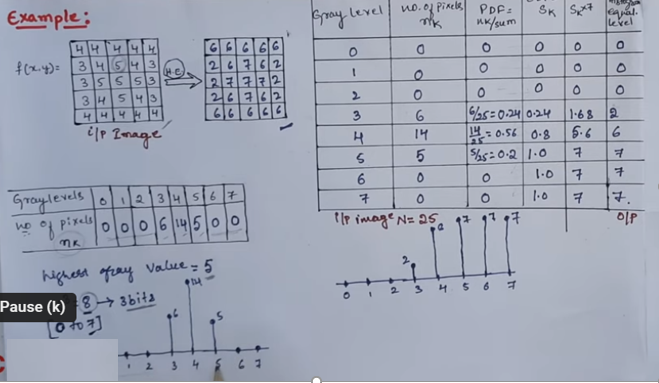 Example:
f(x,y)=
4 4 4 4 4
3 4 5 4 3
3 5 5 5 3
3 4 5 4 3
4 4 4 4 4
i/p Image
H.E
6 6 6 6 6
2 6 7 6 2
2 7 7 7 2
2 6 7 6 2
6 6 6 6 6
Gray levels 0 1 2 3 4 5 6 7
no of pixels nk 0 0 0 6 14 5 0 0
highest gray value = 5
8 → 3bits
[0 to 7]
Pause (k)
6 14 5
1 2 3 4 5 6 7
Gray level no. of pixels nk PDF= nk/sum Sk Sk×7 Equal. level
0 0 0 0 0 0
1 0 0 0 0 0
2 0 0 0 0 0
3 6 6/25=0.24 0.24 1.68 2
4 14 14/25=0.56 0.8 5.6 6
5 5 5/25=0.2 1.0 7 7
6 0 0 1.0 7 7
7 0 0 1.0 7 7
i/p image N=25 O/P
2 7 7 7
0 1 2 3 4 5 6 7